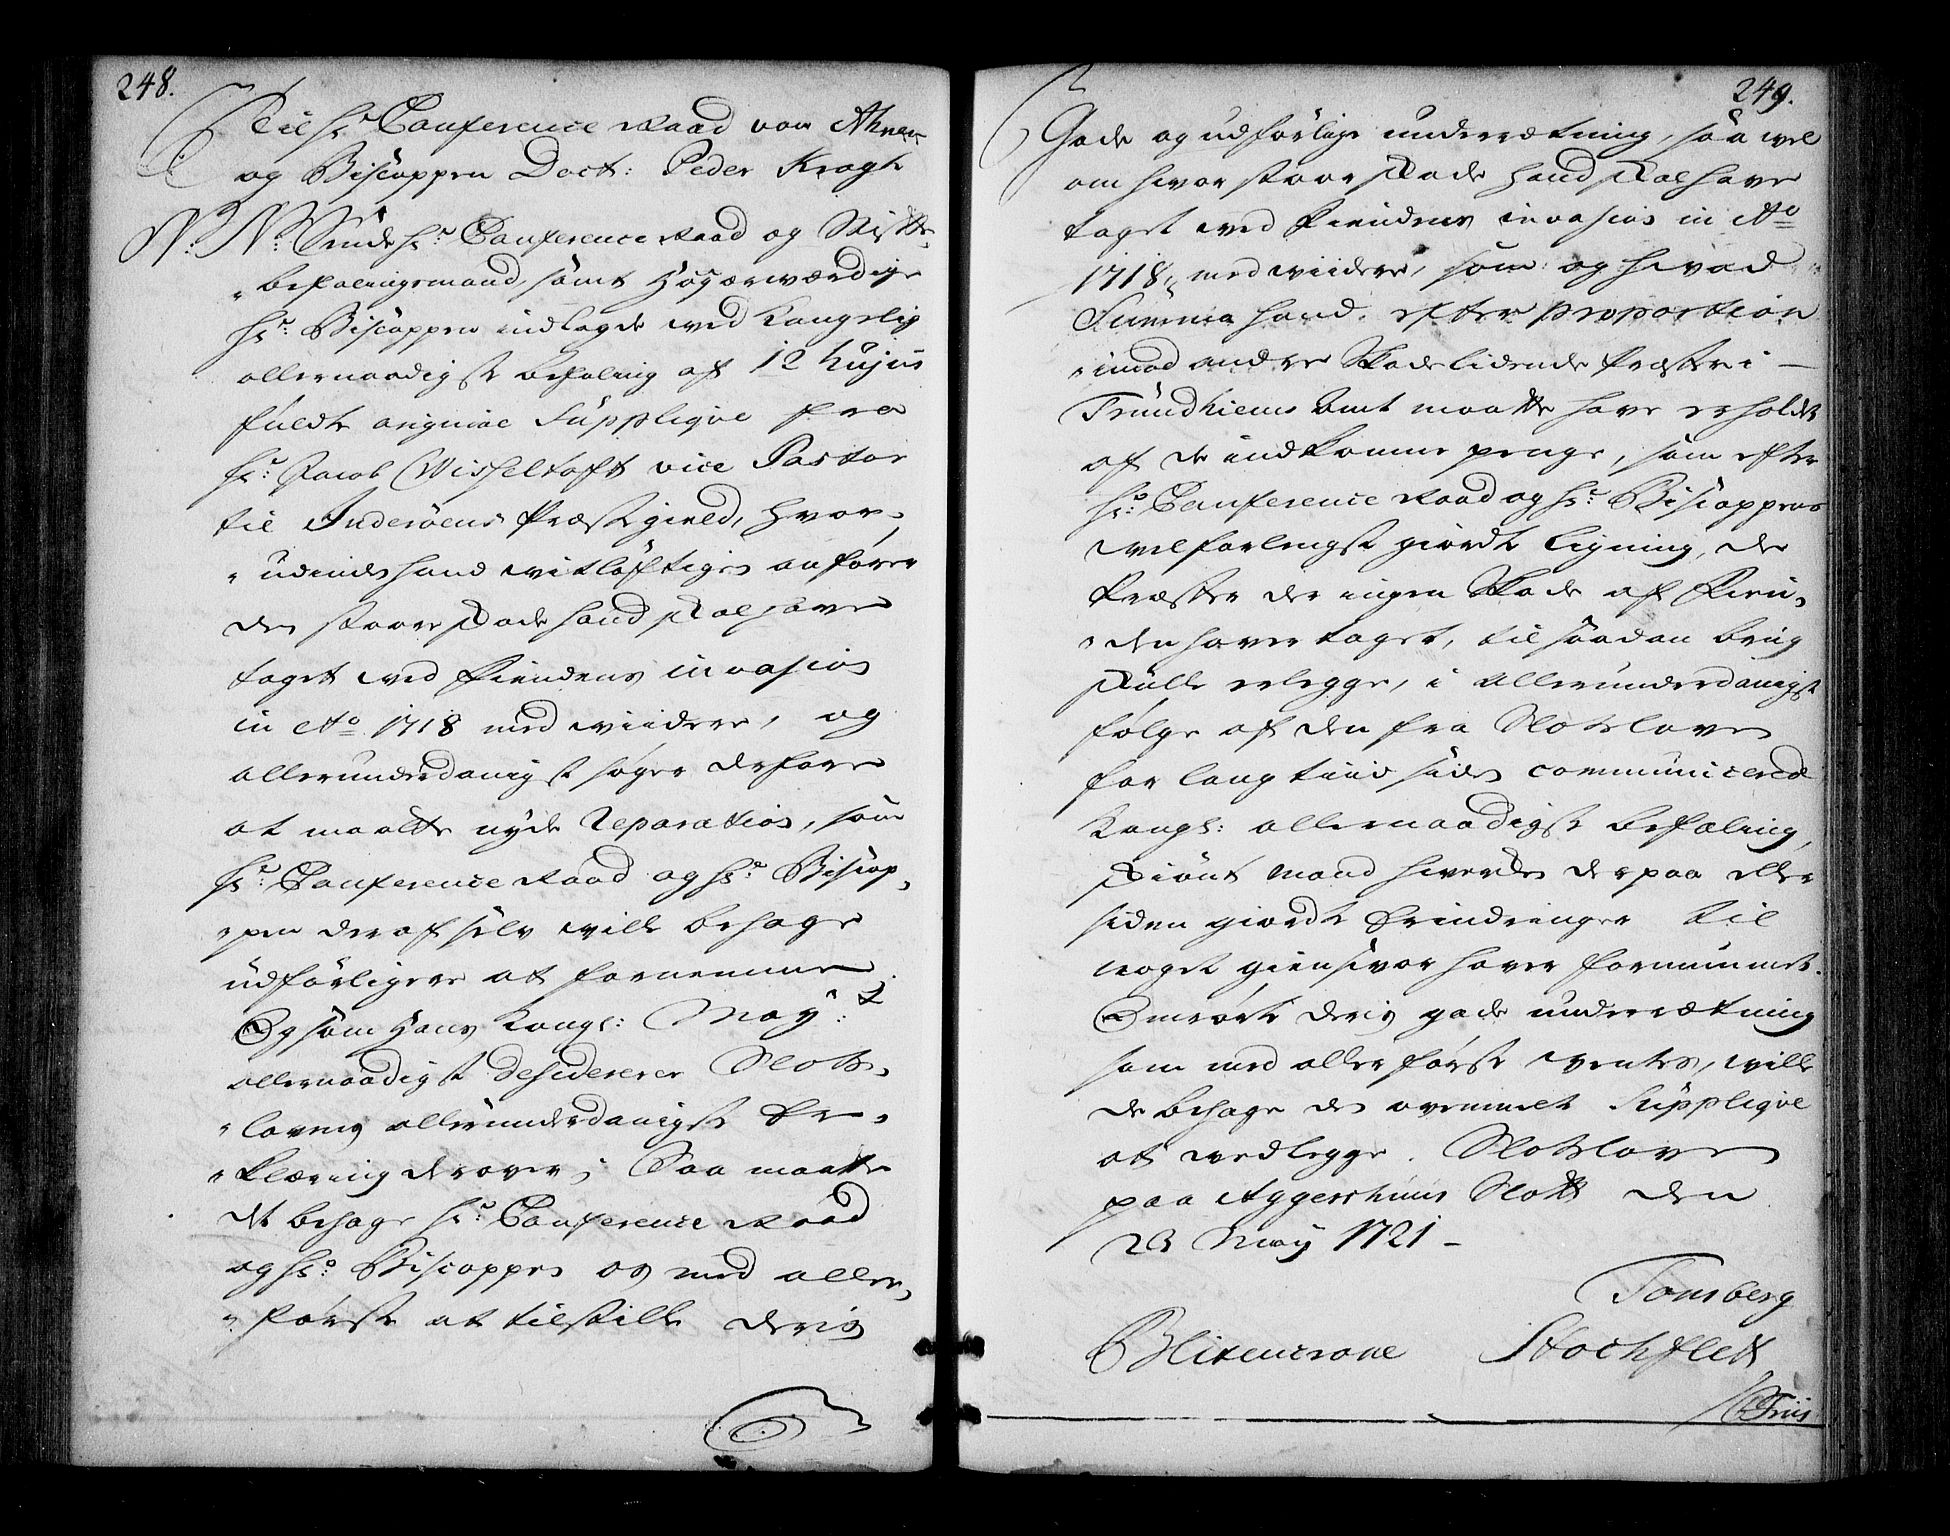 248.
Til Hr: Conference Raad von Ahnen
og Biscoppen Doct: Peder Krogh
N: N: Sende Hr: Conference Raad og Stift-
befalingsmand, samt Høyærværdige
Hr: Biscoppen indlagde ved Kongelig
allernaadigst befaling af 12 hujus
fuldte original Supplique fra
Hr: Jacob Wisseltofft vice Pastor
til Inderöens Præstegield, hvor-
udinden hand vitløftigen anfører
den stoere skade hand skal have
taget ved Fiendens invasion
in Ao 1718 med viidere, og
allerunderdanigst søger derfore
at maatte nyde Reparation, som
Hr: Conference Raad og Hr: Biscop-
pen deraf selv ville behage
udførligere at fornemme.
Og som Hans Kongl: May:t
allernaadigst desiderer Slots-
lovens allerunderdanigste Er-
klæring derover; Saa maatte
det behage Hr: Conference Raad
og Hr: Biscoppen os med aller-
første at tilstille deris
249.
Gode og udførlige underrætning, saa vel
om hvor stoor skade hand skal have
taget ved Fiendens invasion in Ao
1718, med viidere, som og hvad
Summa hand, efter proportion
imod andre Skadelidende Præster i
Trundhiems Amt maatte have erholdt
af de indkomne penge, som efter
Hr: Conference Raad og Hr: Biscoppens
vel forlengst giordte Ligning, de
Præster der ingen Skade af Fien-
den haver taget, til saadan brug
skulle erlegge, i allerunderdanigst
følge af den fra Slotsloven
for lang tiid siden communicerede
Kongl: allernaadigste befaling,
skiønt mand hverken derpaa eller
siden giordte Erindringer til
noget giensvar haver fornummet.
Omrørte deris gode underrætning
som med allerførste ventes, ville
de behage den ovenmelt Supplique
at vedlegge. Slotsloven
paa Aggershuus Slott den
23 May 1721 -
Tonsberg
Blixencrone Stochflett
Friis